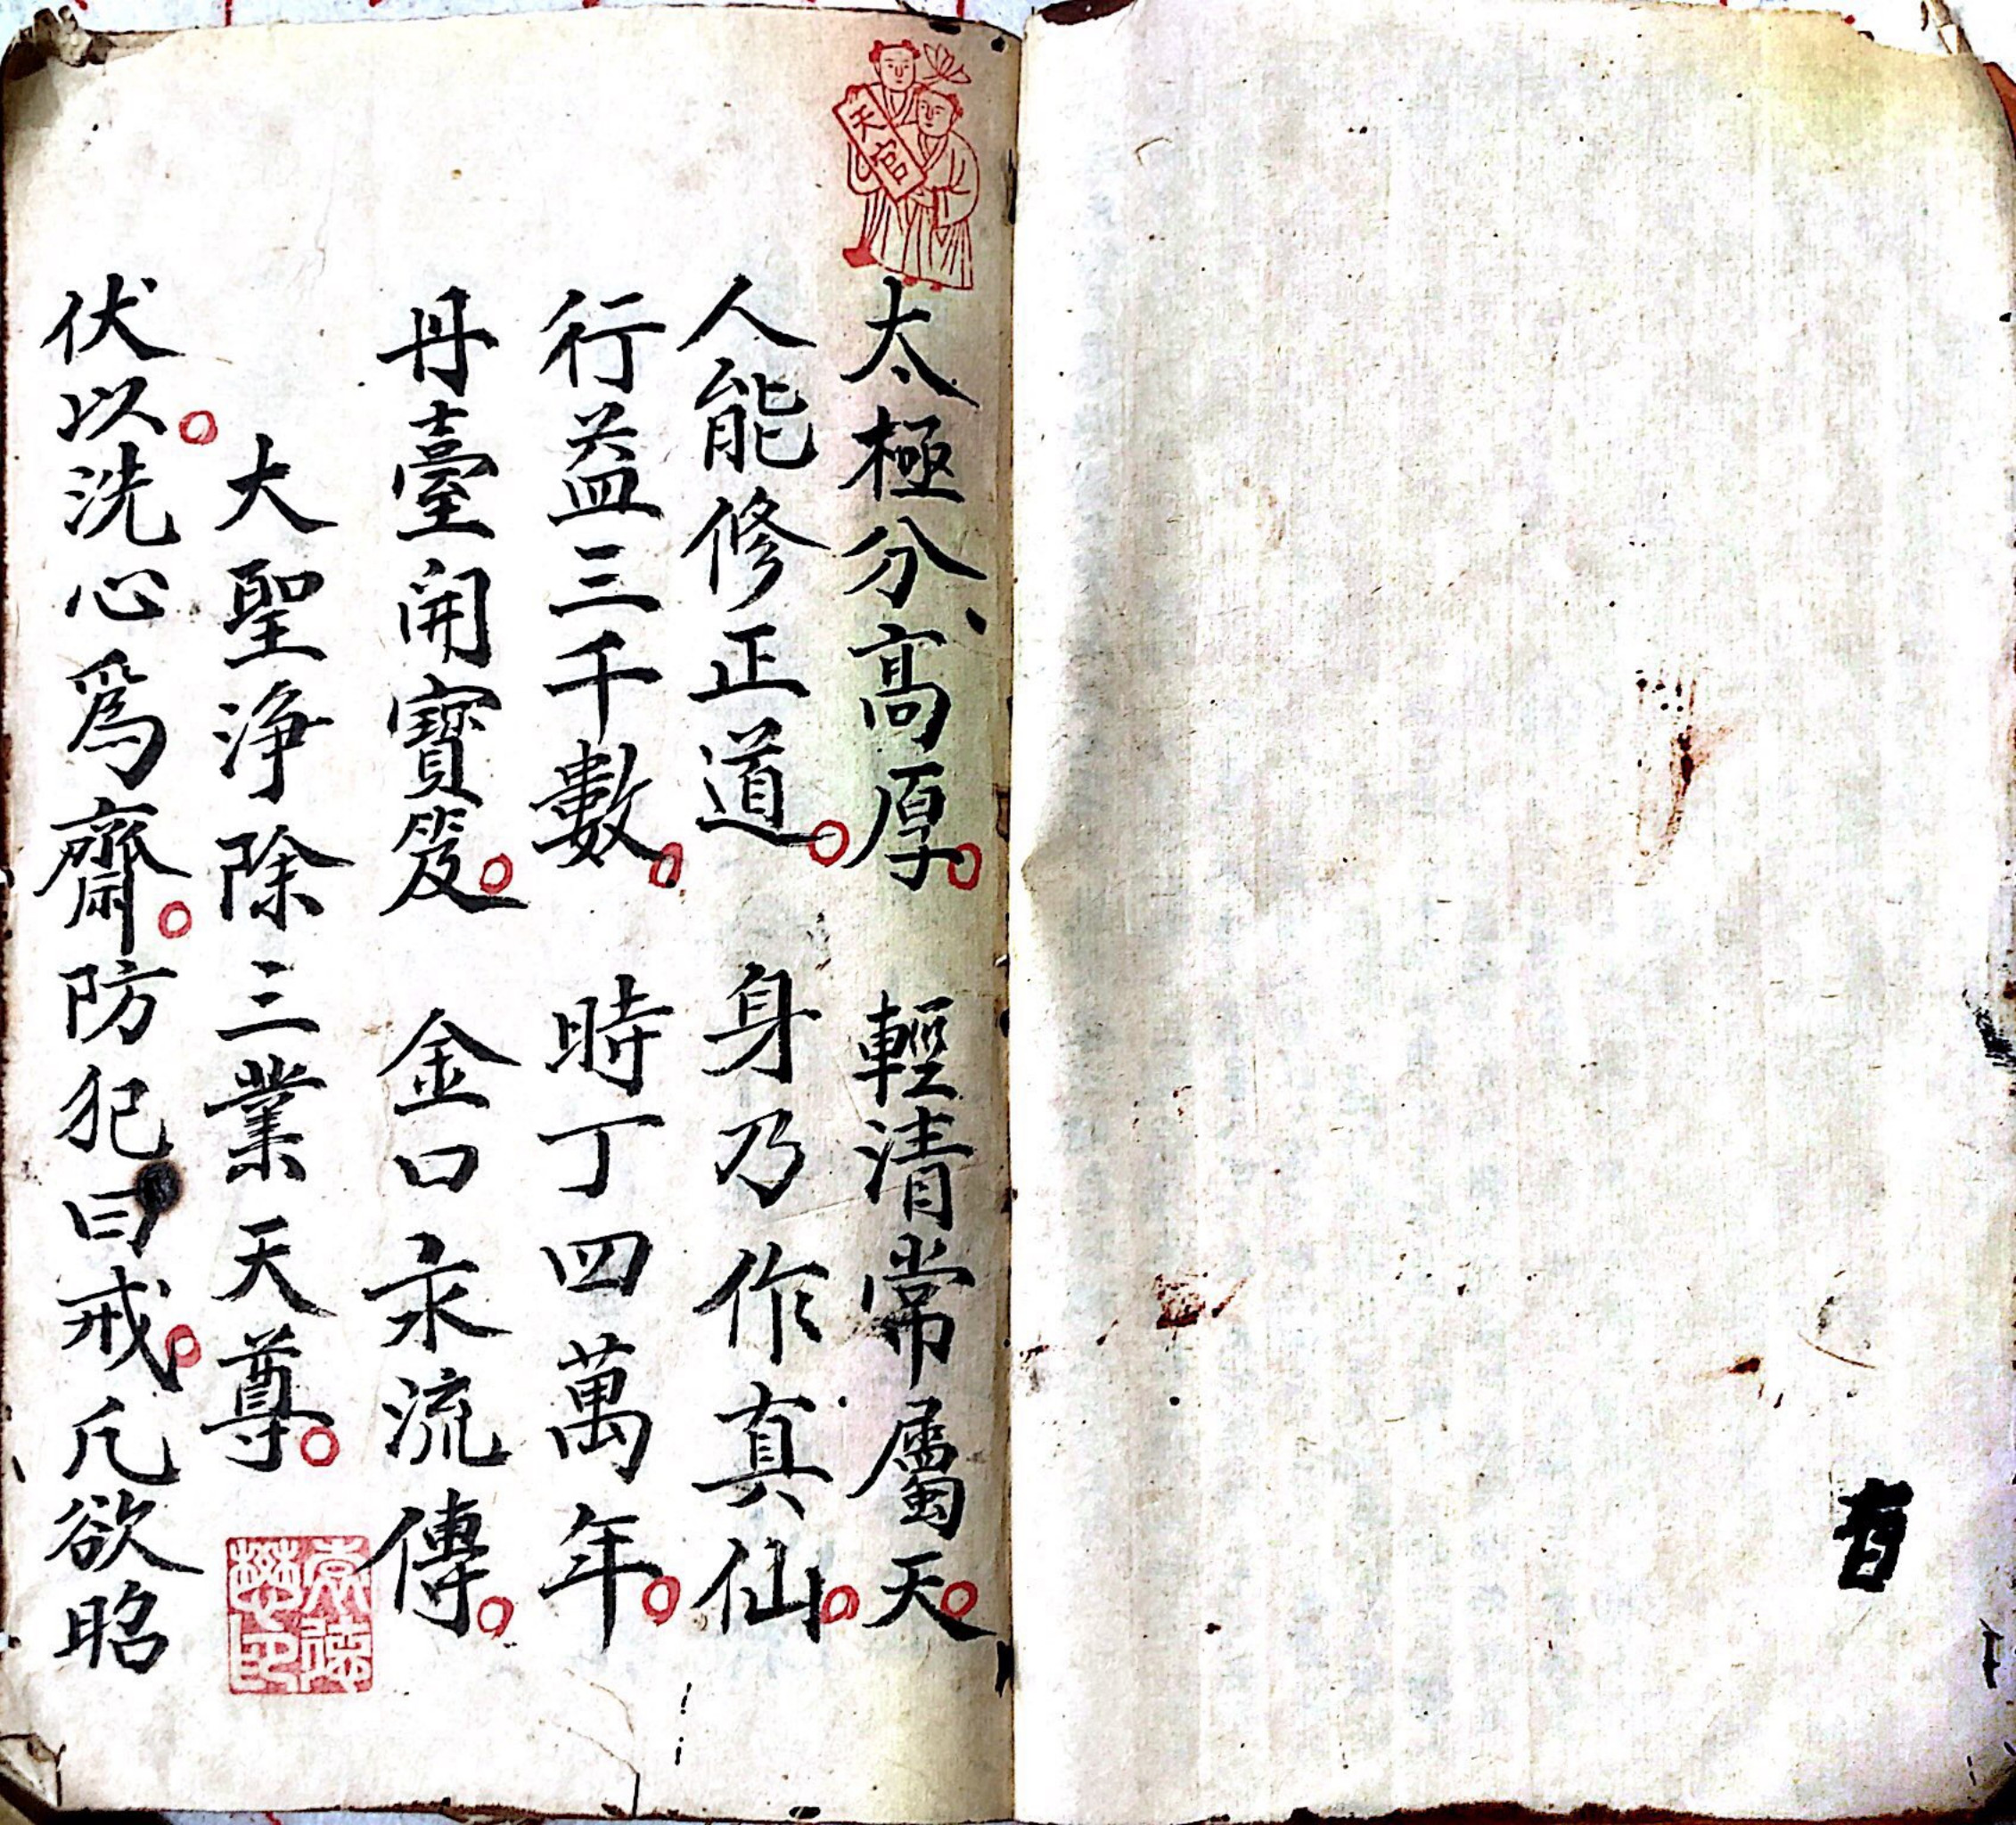 天官
太極分高厚。輕清常屬天。
人能修正道。身乃作真仙。
行益三千數。時丁四萬年。
丹臺開寶笈。金口永流傳。
大聖淨除三業天尊。
伏以。洗心爲齋。防犯曰戒。凢欲昭